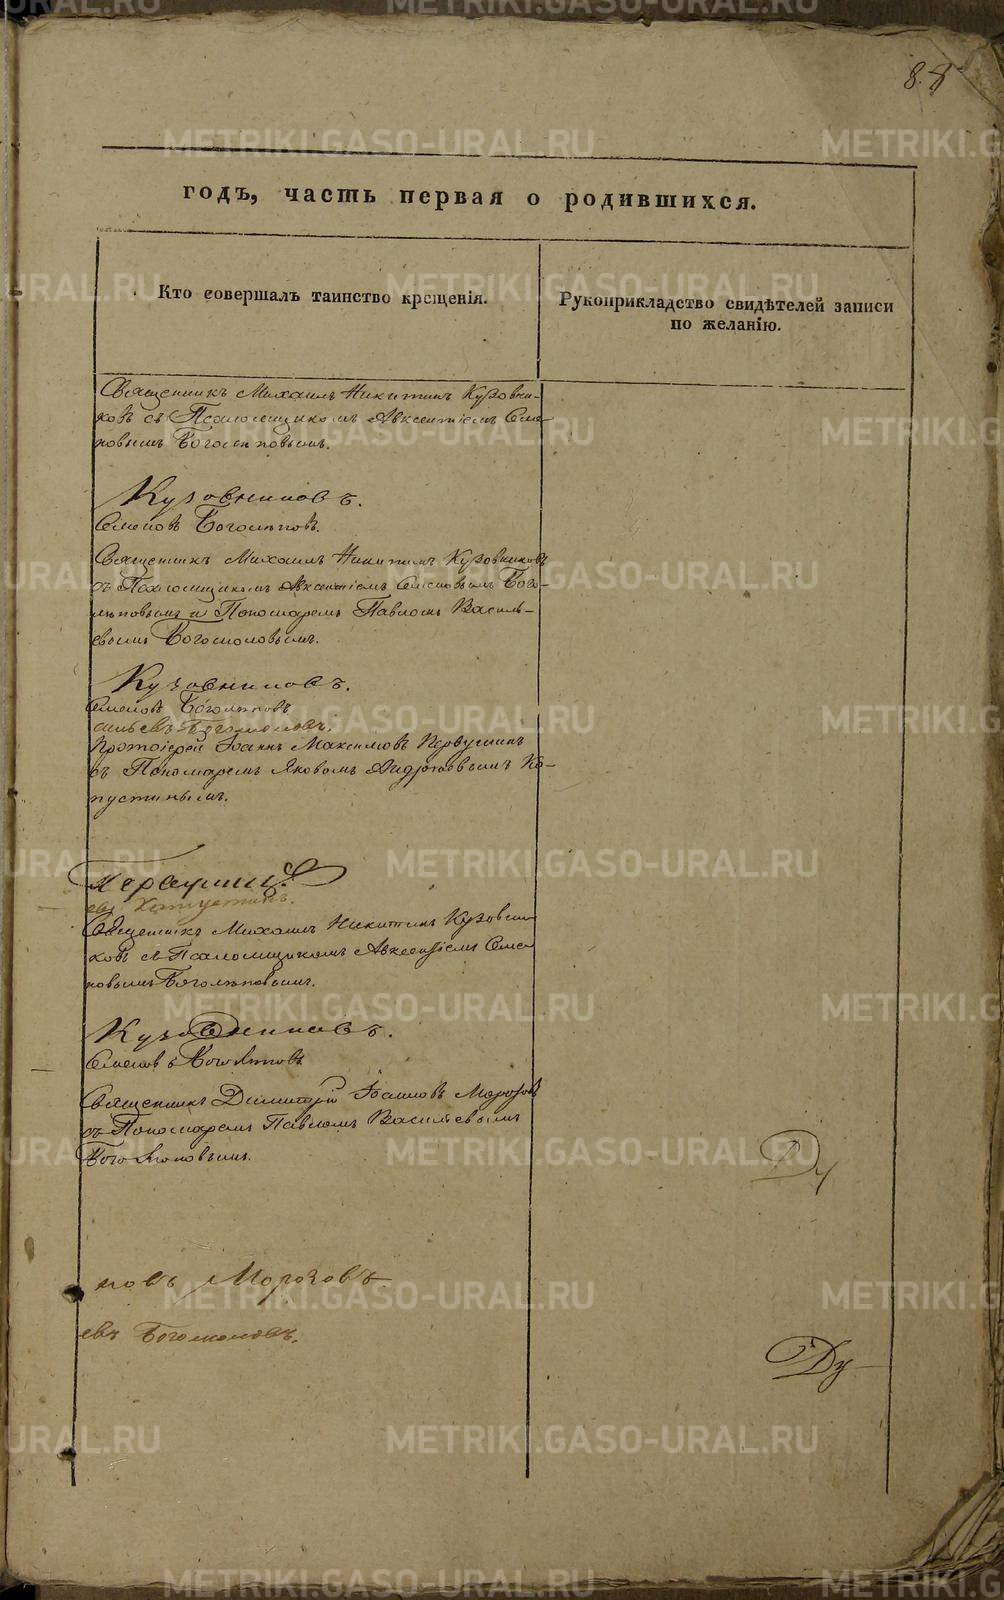 88
годъ, часть первая о родившихся.
Кто совершалъ таинство крещенія.
Рукоприкладство свидѣтелей записи
по желанію.
Священникъ Михаилъ Никитинъ Кузовни-
ковъ съ Псаломщикомъ Авксентіемъ Семе-
новымъ Боголѣповымъ.
Кузовниковъ.
Семеновъ Боголѣповъ.
Священникъ Михаилъ Никитинъ Кузовниковъ
съ Псаломщикомъ Авксентіемъ Семеновымъ Бого-
лѣповымъ и Пономаремъ Павломъ Василь-
евымъ Богомоловымъ.
Кузовниковъ.
Семеновъ Боголѣповъ.
сильевъ Богомоловъ.
Протоіерей Іоаннъ Максимовъ Первушинъ
съ Пономаремъ Яковомъ Андреевымъ Ка-
пустинымъ.
Первушинъ.
евъ Капустинъ.
Священникъ Михаилъ Никитинъ Кузовни-
ковъ съ Псаломщикомъ Авксентіемъ Семе-
новымъ Боголѣповымъ.
Кузовниковъ.
Семеновъ Боголѣповъ
Священникъ Димитрій Іоанновъ Морозовъ
съ Пономаремъ Павломъ Васильевымъ
Богомоловымъ.
Ду
новъ Морозовъ
евъ Богомоловъ.
Ду
METRIKI.GASO-URAL.RU